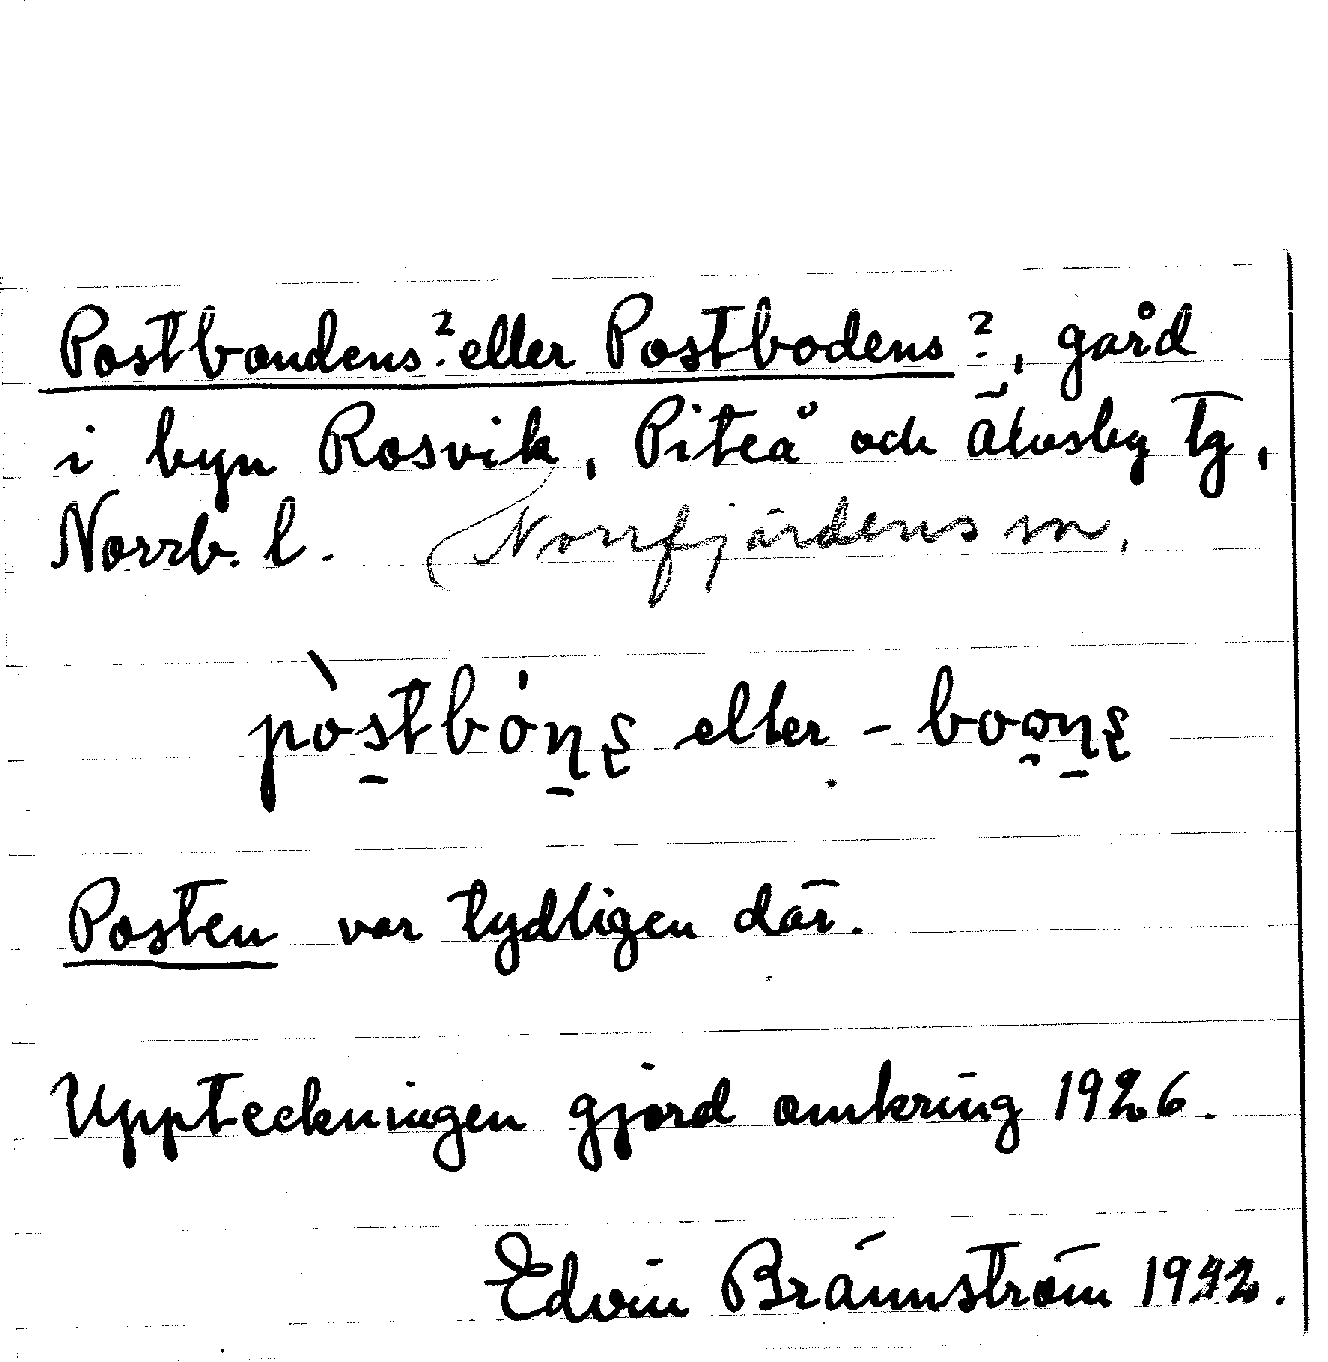 Postbondens? eller Postbodens?, gård
i byn Rosvik, Piteå och Älvsby tg,
Norrb. l. (Norrfjärdens sn.
pòstbóṉs eller -booṉs
Posten var tydligen där.
Uppteckningen gjord omkring 1926.
Edvin Brännström